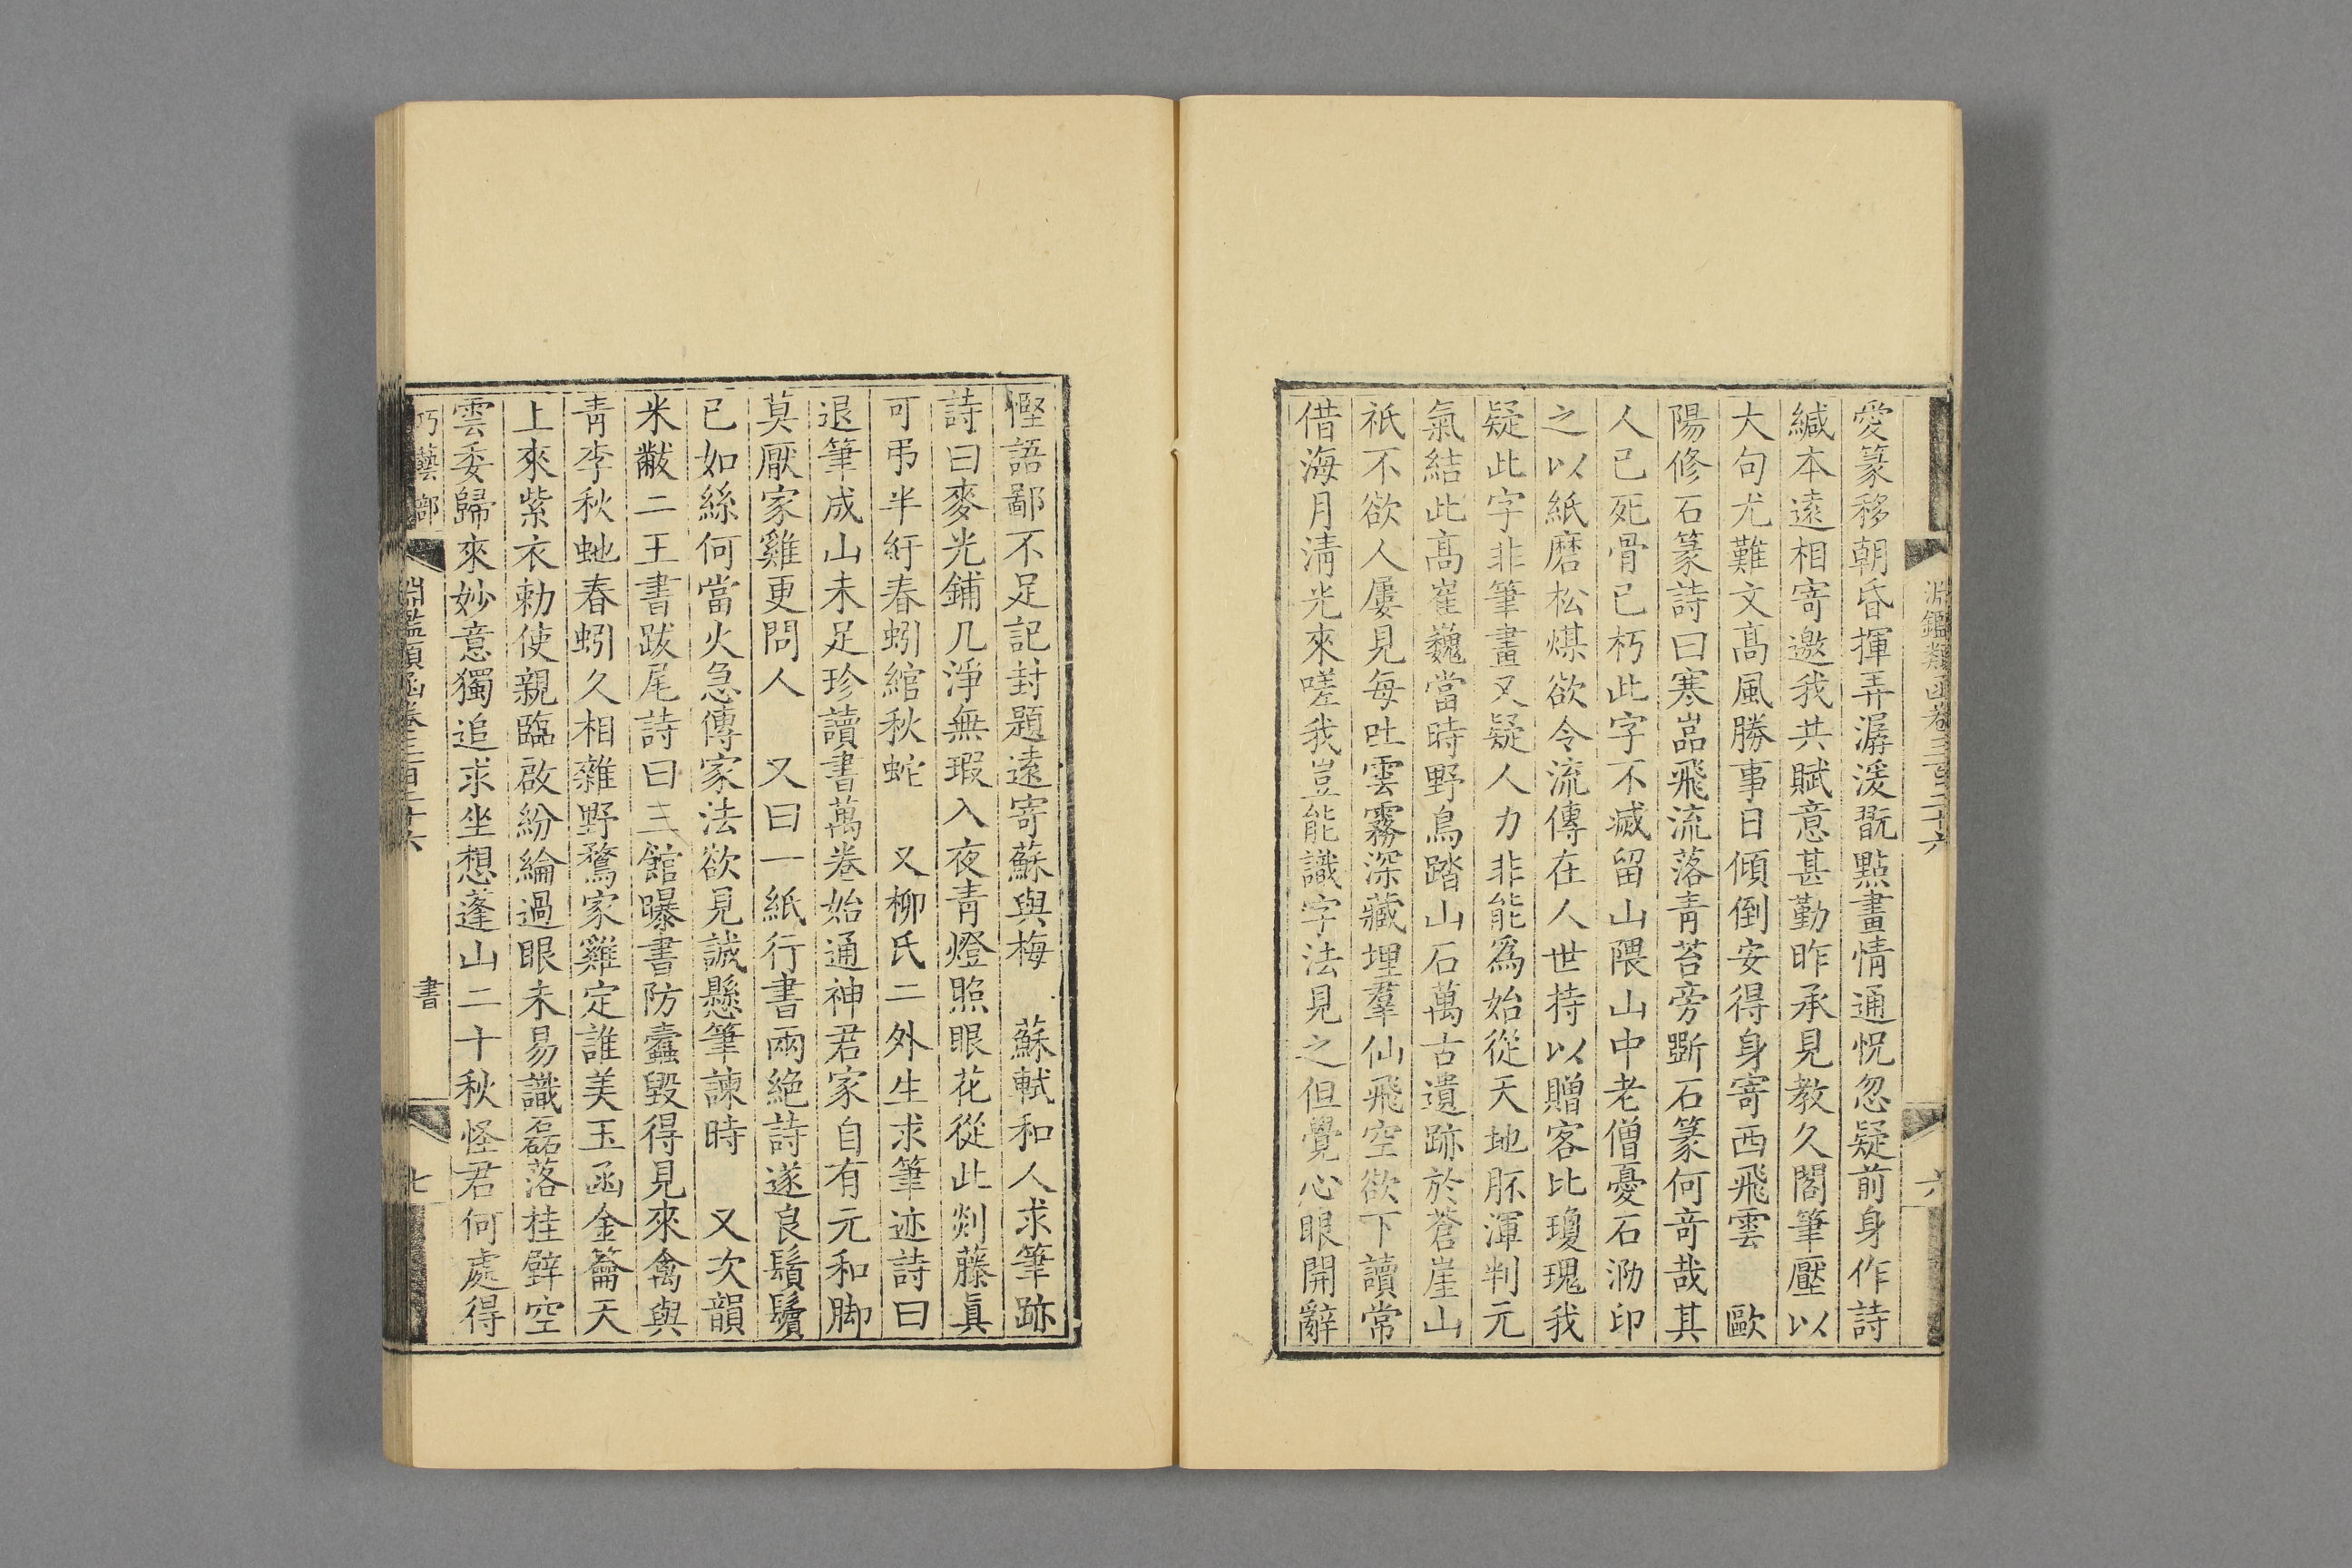 淵鑑類函卷三百二十六
六
愛篆移朝昏揮弄潺湲翫點畫情通怳忽疑前身作詩
緘本遠相寄邀我共賦意甚勤昨承見教久閣筆壓以
大句尤難文高風勝事日傾倒安得身寄西飛雲　歐
陽修石篆詩曰寒嵓飛流落青苔旁斲石篆何奇哉其
人已死骨已朽此字不滅留山隈山中老僧憂石泐印
之以紙磨松煤欲令流傳在人世持以贈客比瓊瑰我
疑此字非筆畫又疑人力非能爲始從天地胚渾判元
氣結此高崔巍當時野鳥踏山石萬古遺跡於蒼崖山
祇不欲人屢見每吐雲霧深藏埋羣仙飛空欲下讀常
借海月清光來嗟我豈能識字法見之但覺心眼開辭
慳語鄙不足記封題遠寄蘇與梅　蘇軾和人求筆跡
詩曰麥光鋪几淨無瑕入夜青燈照眼花從此剡藤眞
可弔半紆春蚓綰秋蛇　又柳氏二外生求筆迹詩曰
退筆成山未足珍讀書萬卷始通神君家自有元和脚
莫厭家雞更問人　又曰一紙行書兩絶詩遂良鬚鬢
已如絲何當火急傳家法欲見誠懸筆諫時　又次韻
米黻二王書跋尾詩曰三館曝書防蠹毀得見來禽與
青李秋虵春蚓久相雜野鶩家雞定誰美玉函金籥天
上來紫衣勅使親臨啟紛綸過眼未易識磊落挂壁空
雲委歸來妙意獨追求坐想蓬山二十秋怪君何處得
巧藝部
淵鑑類函卷三百二十六
書
七